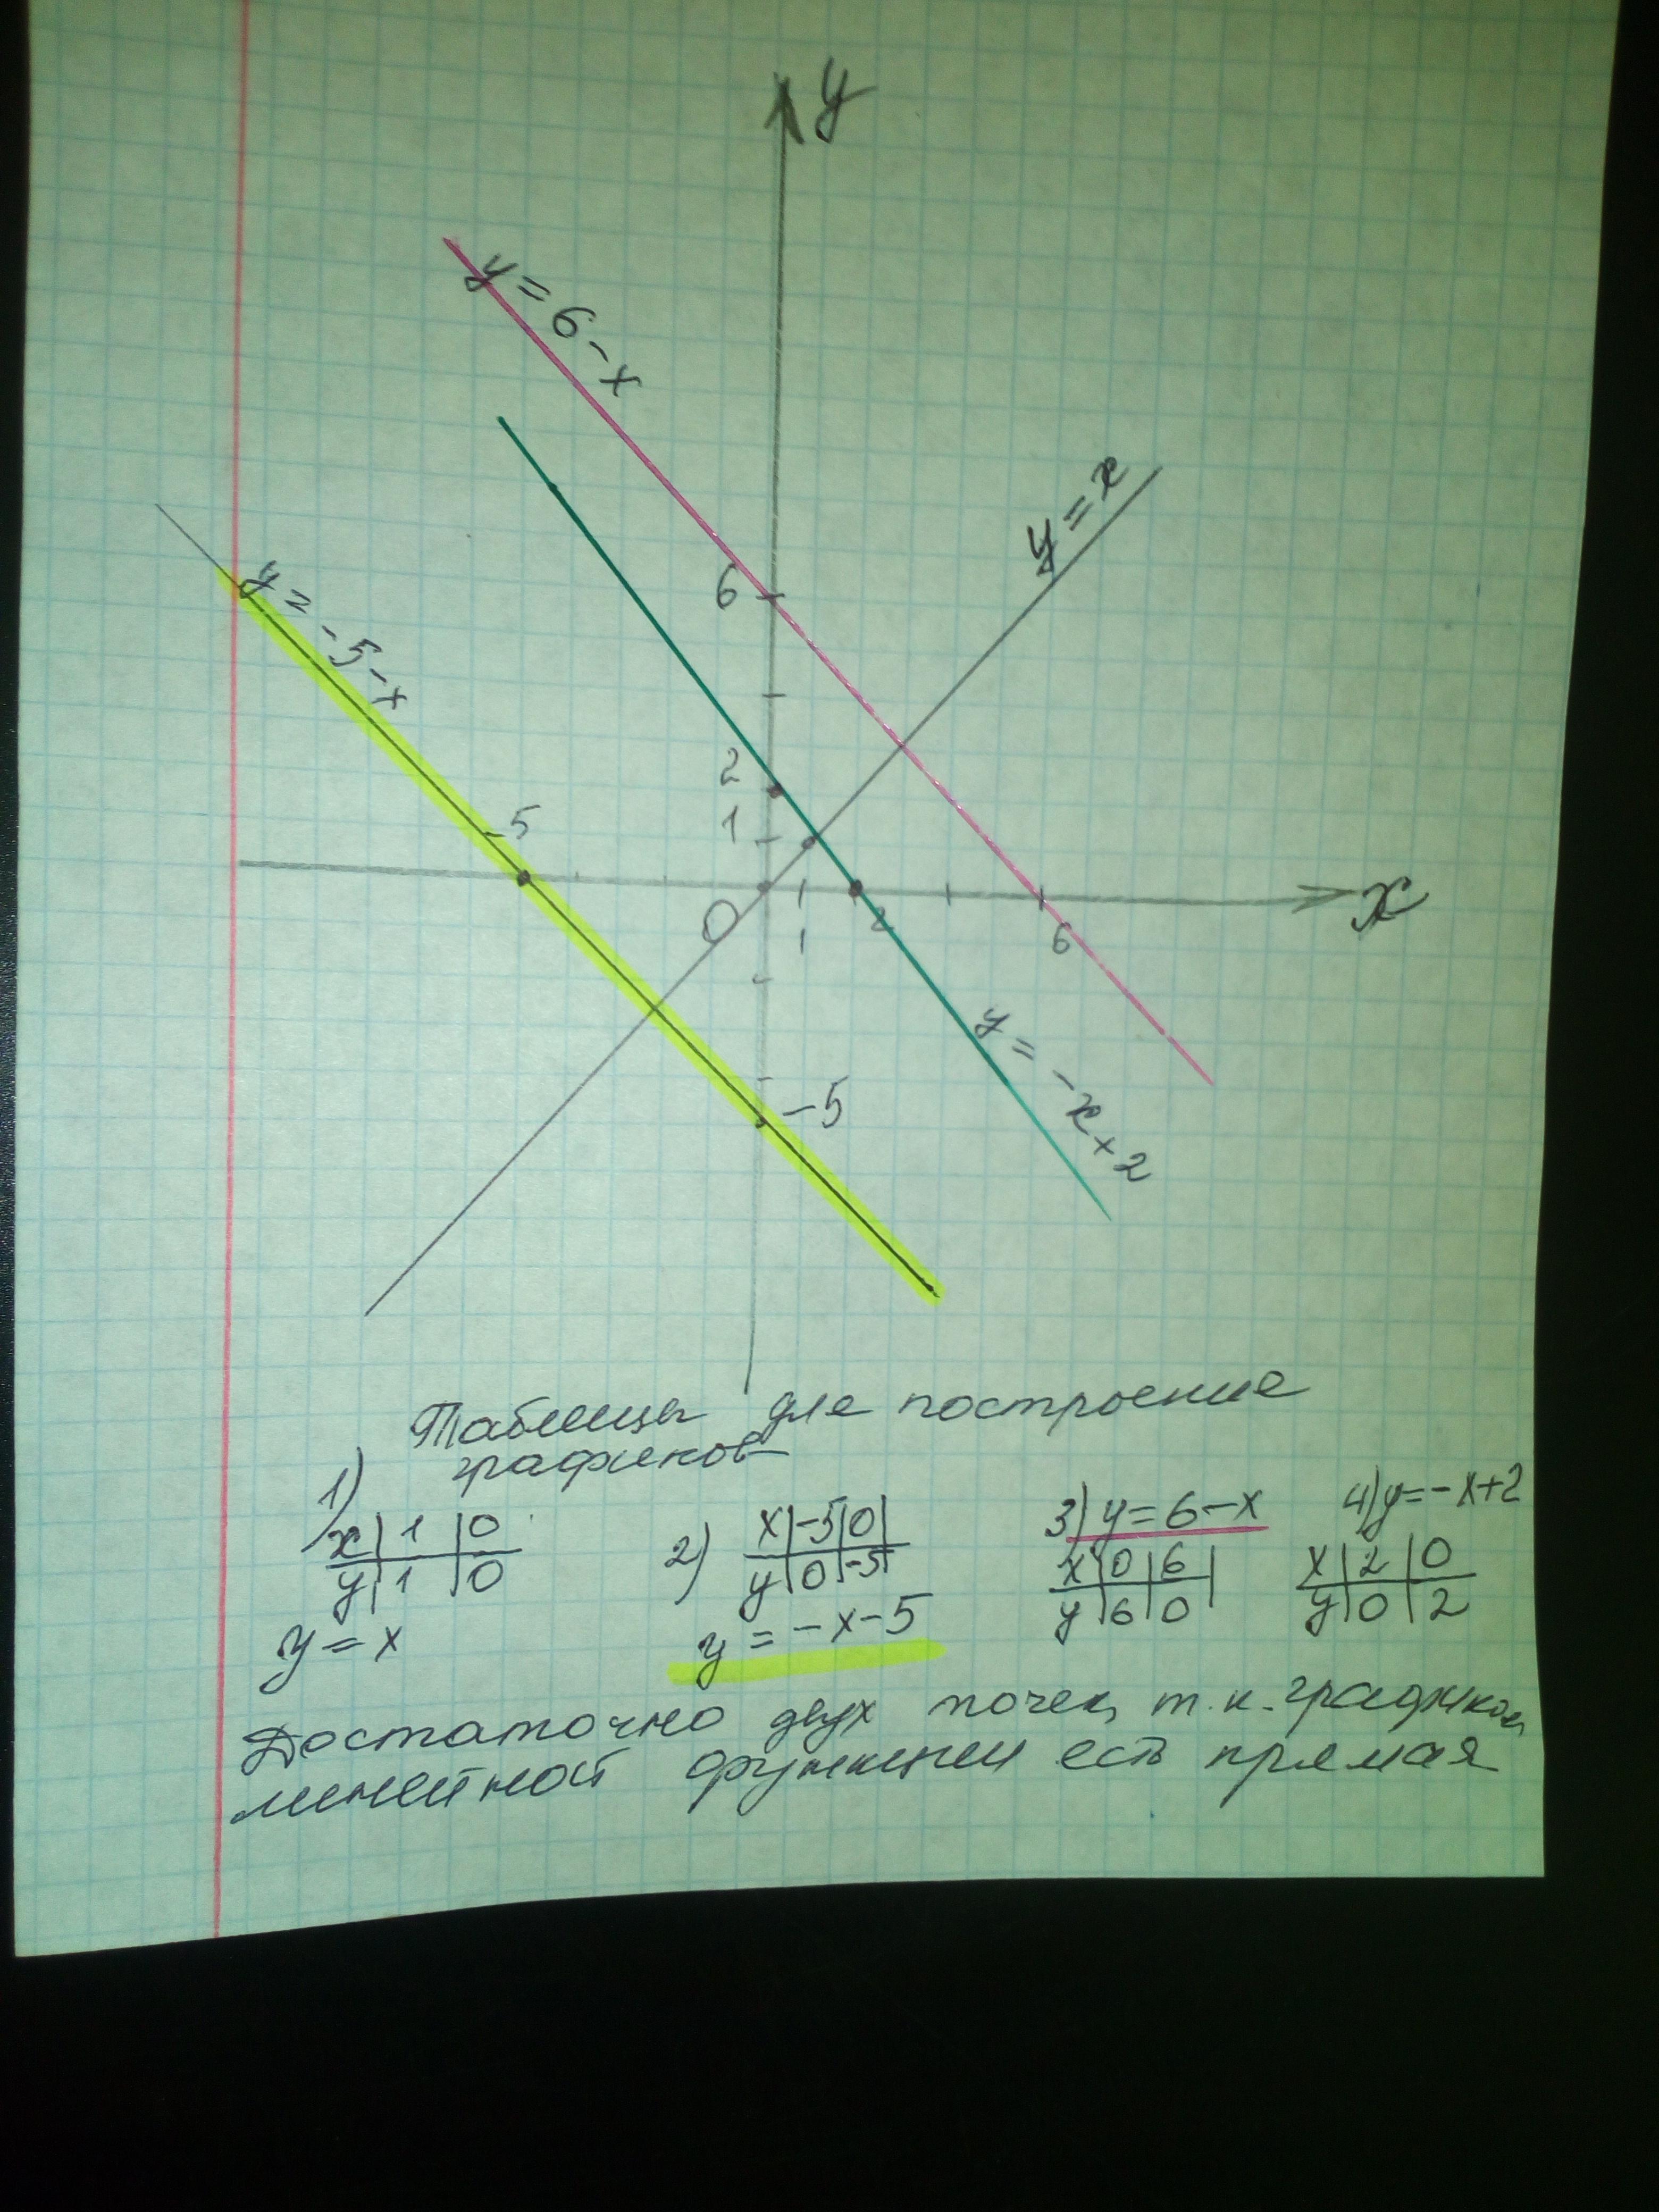 y
y = 6 - x
y = x
6
y = -5 - x
2
-5
1
0
1
2
6
x
-5
y = -x + 2
Таблицы для построение
графиков
1)
x | 1 | 0
y | 1 | 0
y = x
2)
x | -5 | 0 |
y | 0 | -5 |
y = -x - 5
3) y = 6 - x
x | 0 | 6 |
y | 6 | 0 |
4) y = -x + 2
x | 2 | 0
y | 0 | 2
Достаточно двух точек, т.к. графиком
линейной функции есть прямая